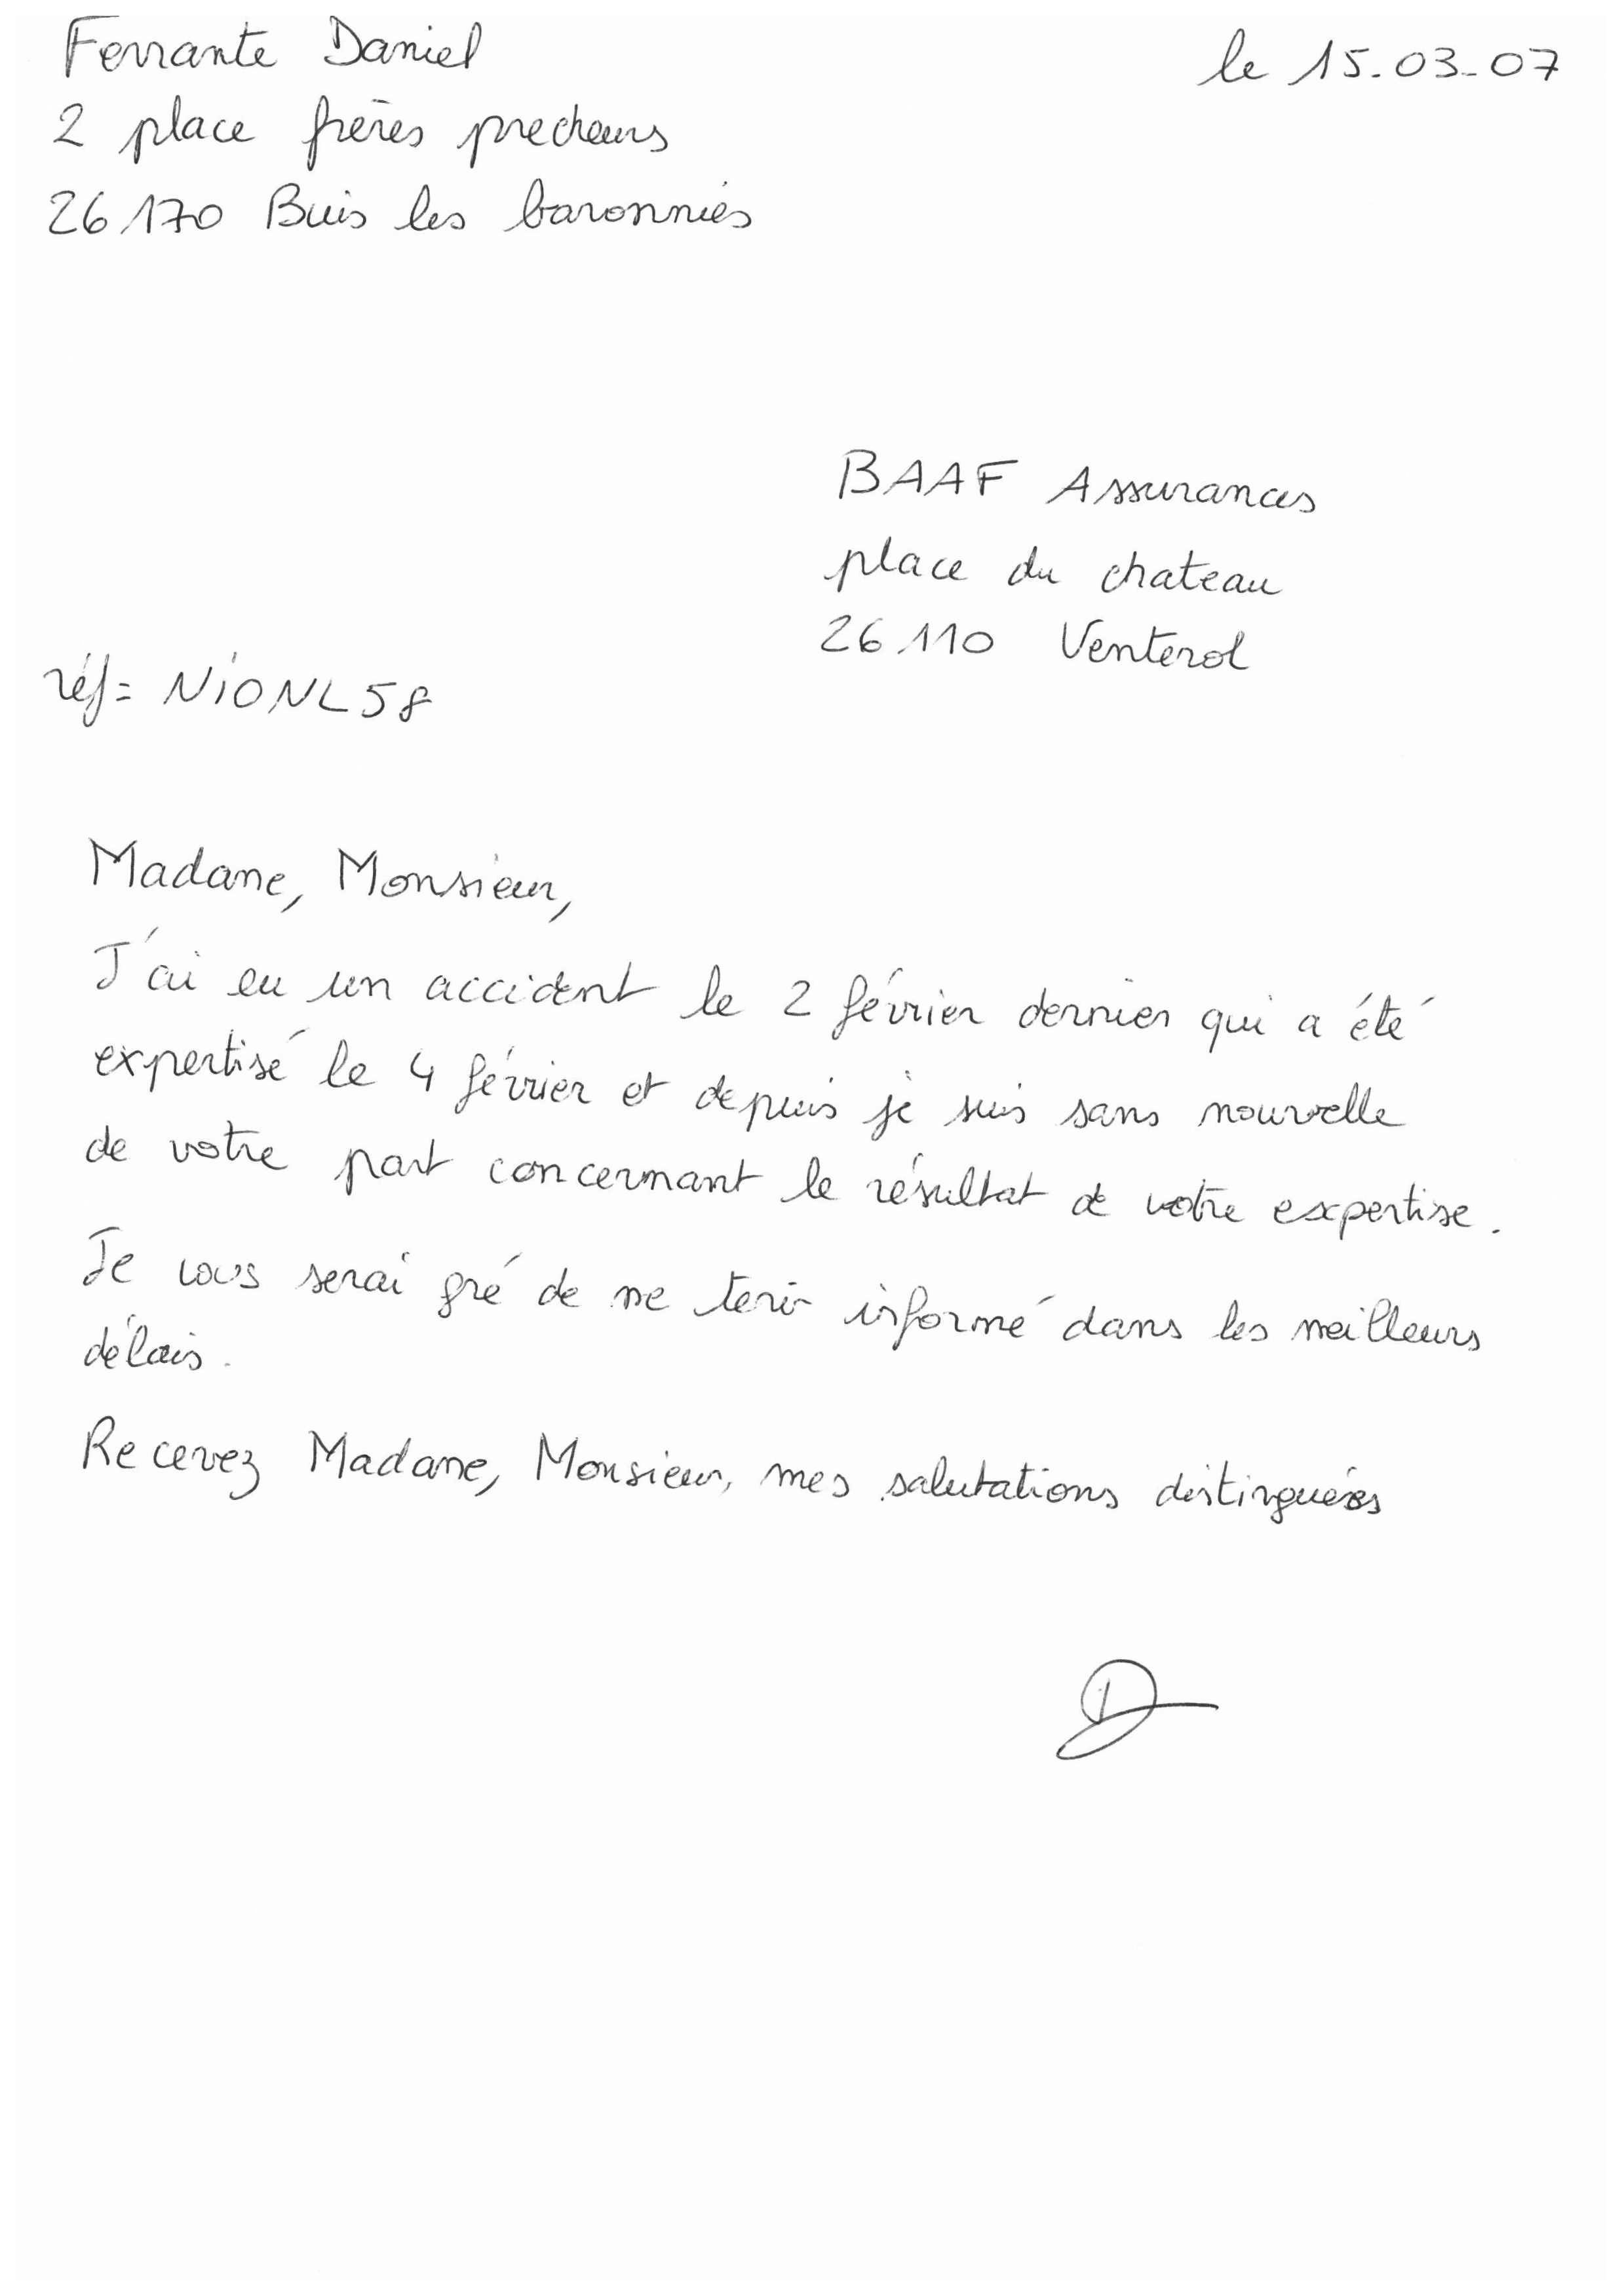 Ferrante Daniel
le 15.03-07
2 place frères precheurs
26170 Buis les baronnies
BAAF Assurances
place du chateau
26110 Venterol
réf= NIONL58
Madame, Monsieur,
J'ai eu un accident le 2 février dernier qui a été
expertisé le 4 février et depuis je suis sans nouvelle
de votre part concernant le résultat de votre expertise.
Je vous serai gré de me tenir informé dans les meilleurs
délais.
Recevez Madame, Monsieur, mes salutations distinguées
D